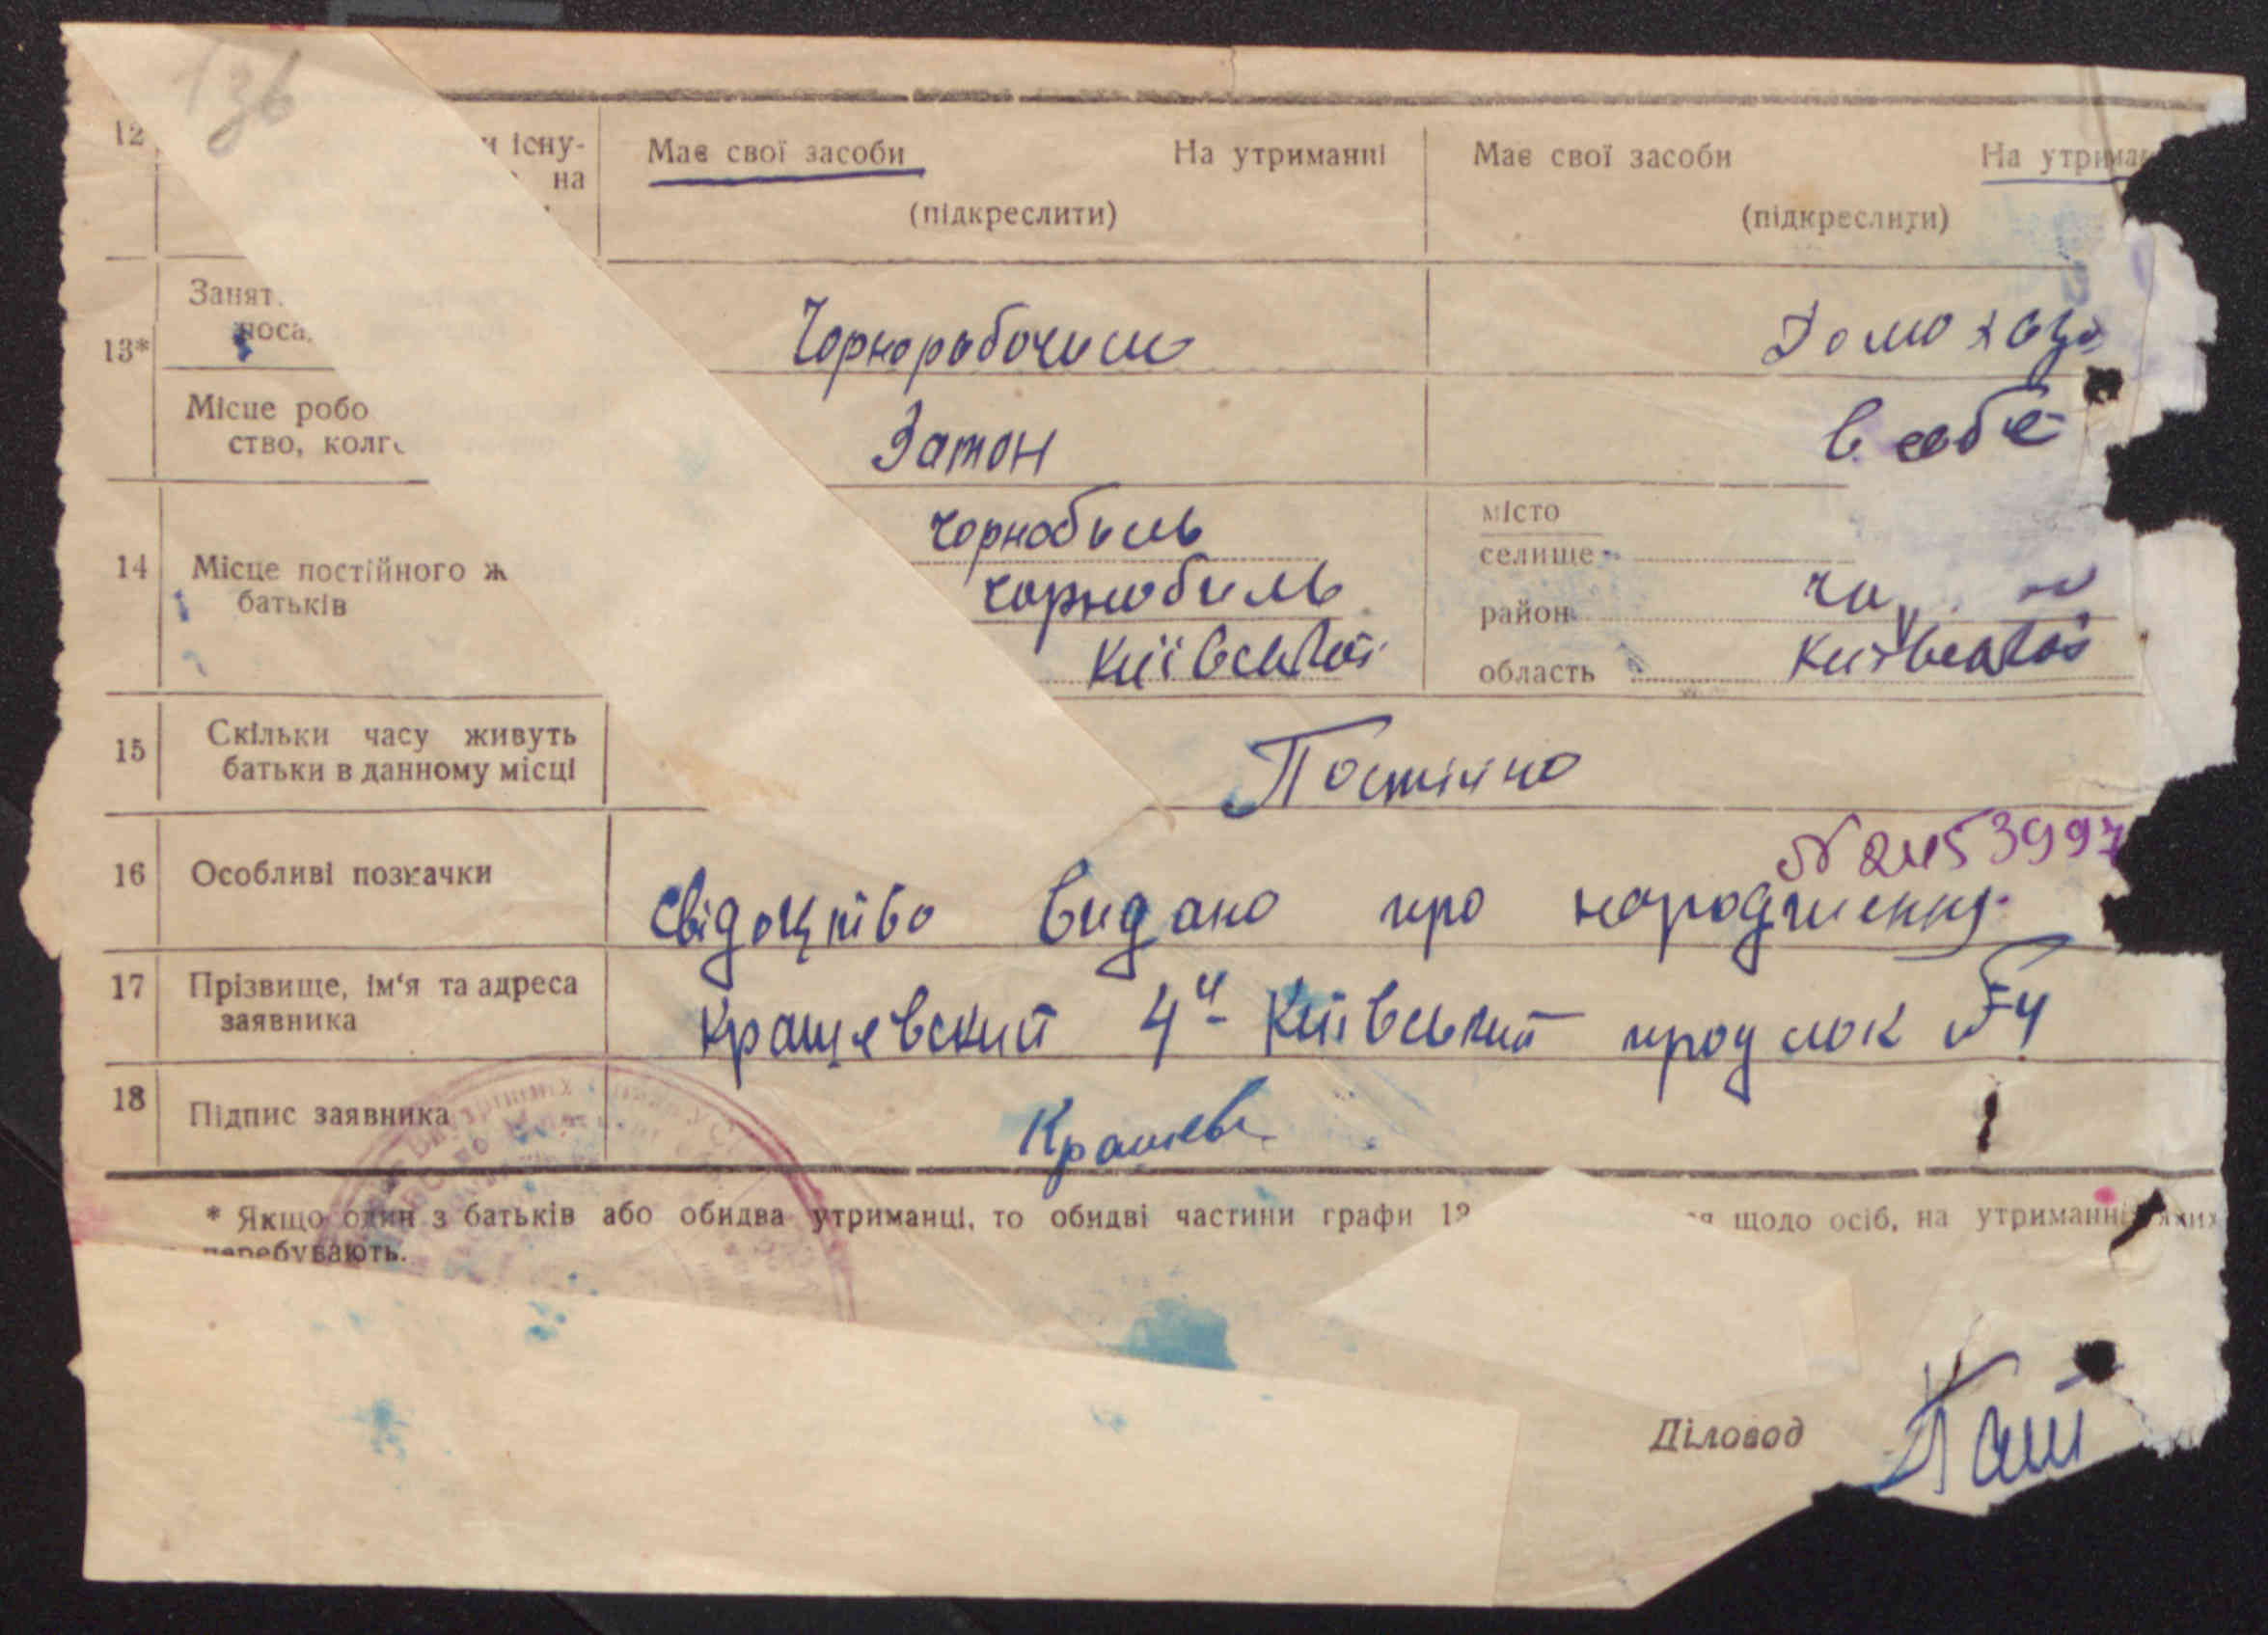 136
12
існу-
на
Має свої засоби На утриманні
(підкреслити)
Має свої засоби На утриман
(підкреслити)
13*
Занят
поса
Чорнорабочий
Домохазя
Місце робо
ство, колг
Затон
в себе
14
Місце постійного ж
батьків
Чорнобиль
Чорнобиль
Київської
місто
селище
район
область Київської
15
Скільки часу живуть
батьки в данному місці
Постійно
16
Особливі позначки
№
Свідоцтво видано про народження
17
Прізвище, ім'я та адреса
заявника
Кращевский 4й Київський проулок №4
18
Підпис заявника
* Якщо один з батьків або обидва утриманці, то обидві частини графи щодо осіб, на утриманні яких
перебувають.
Діловод